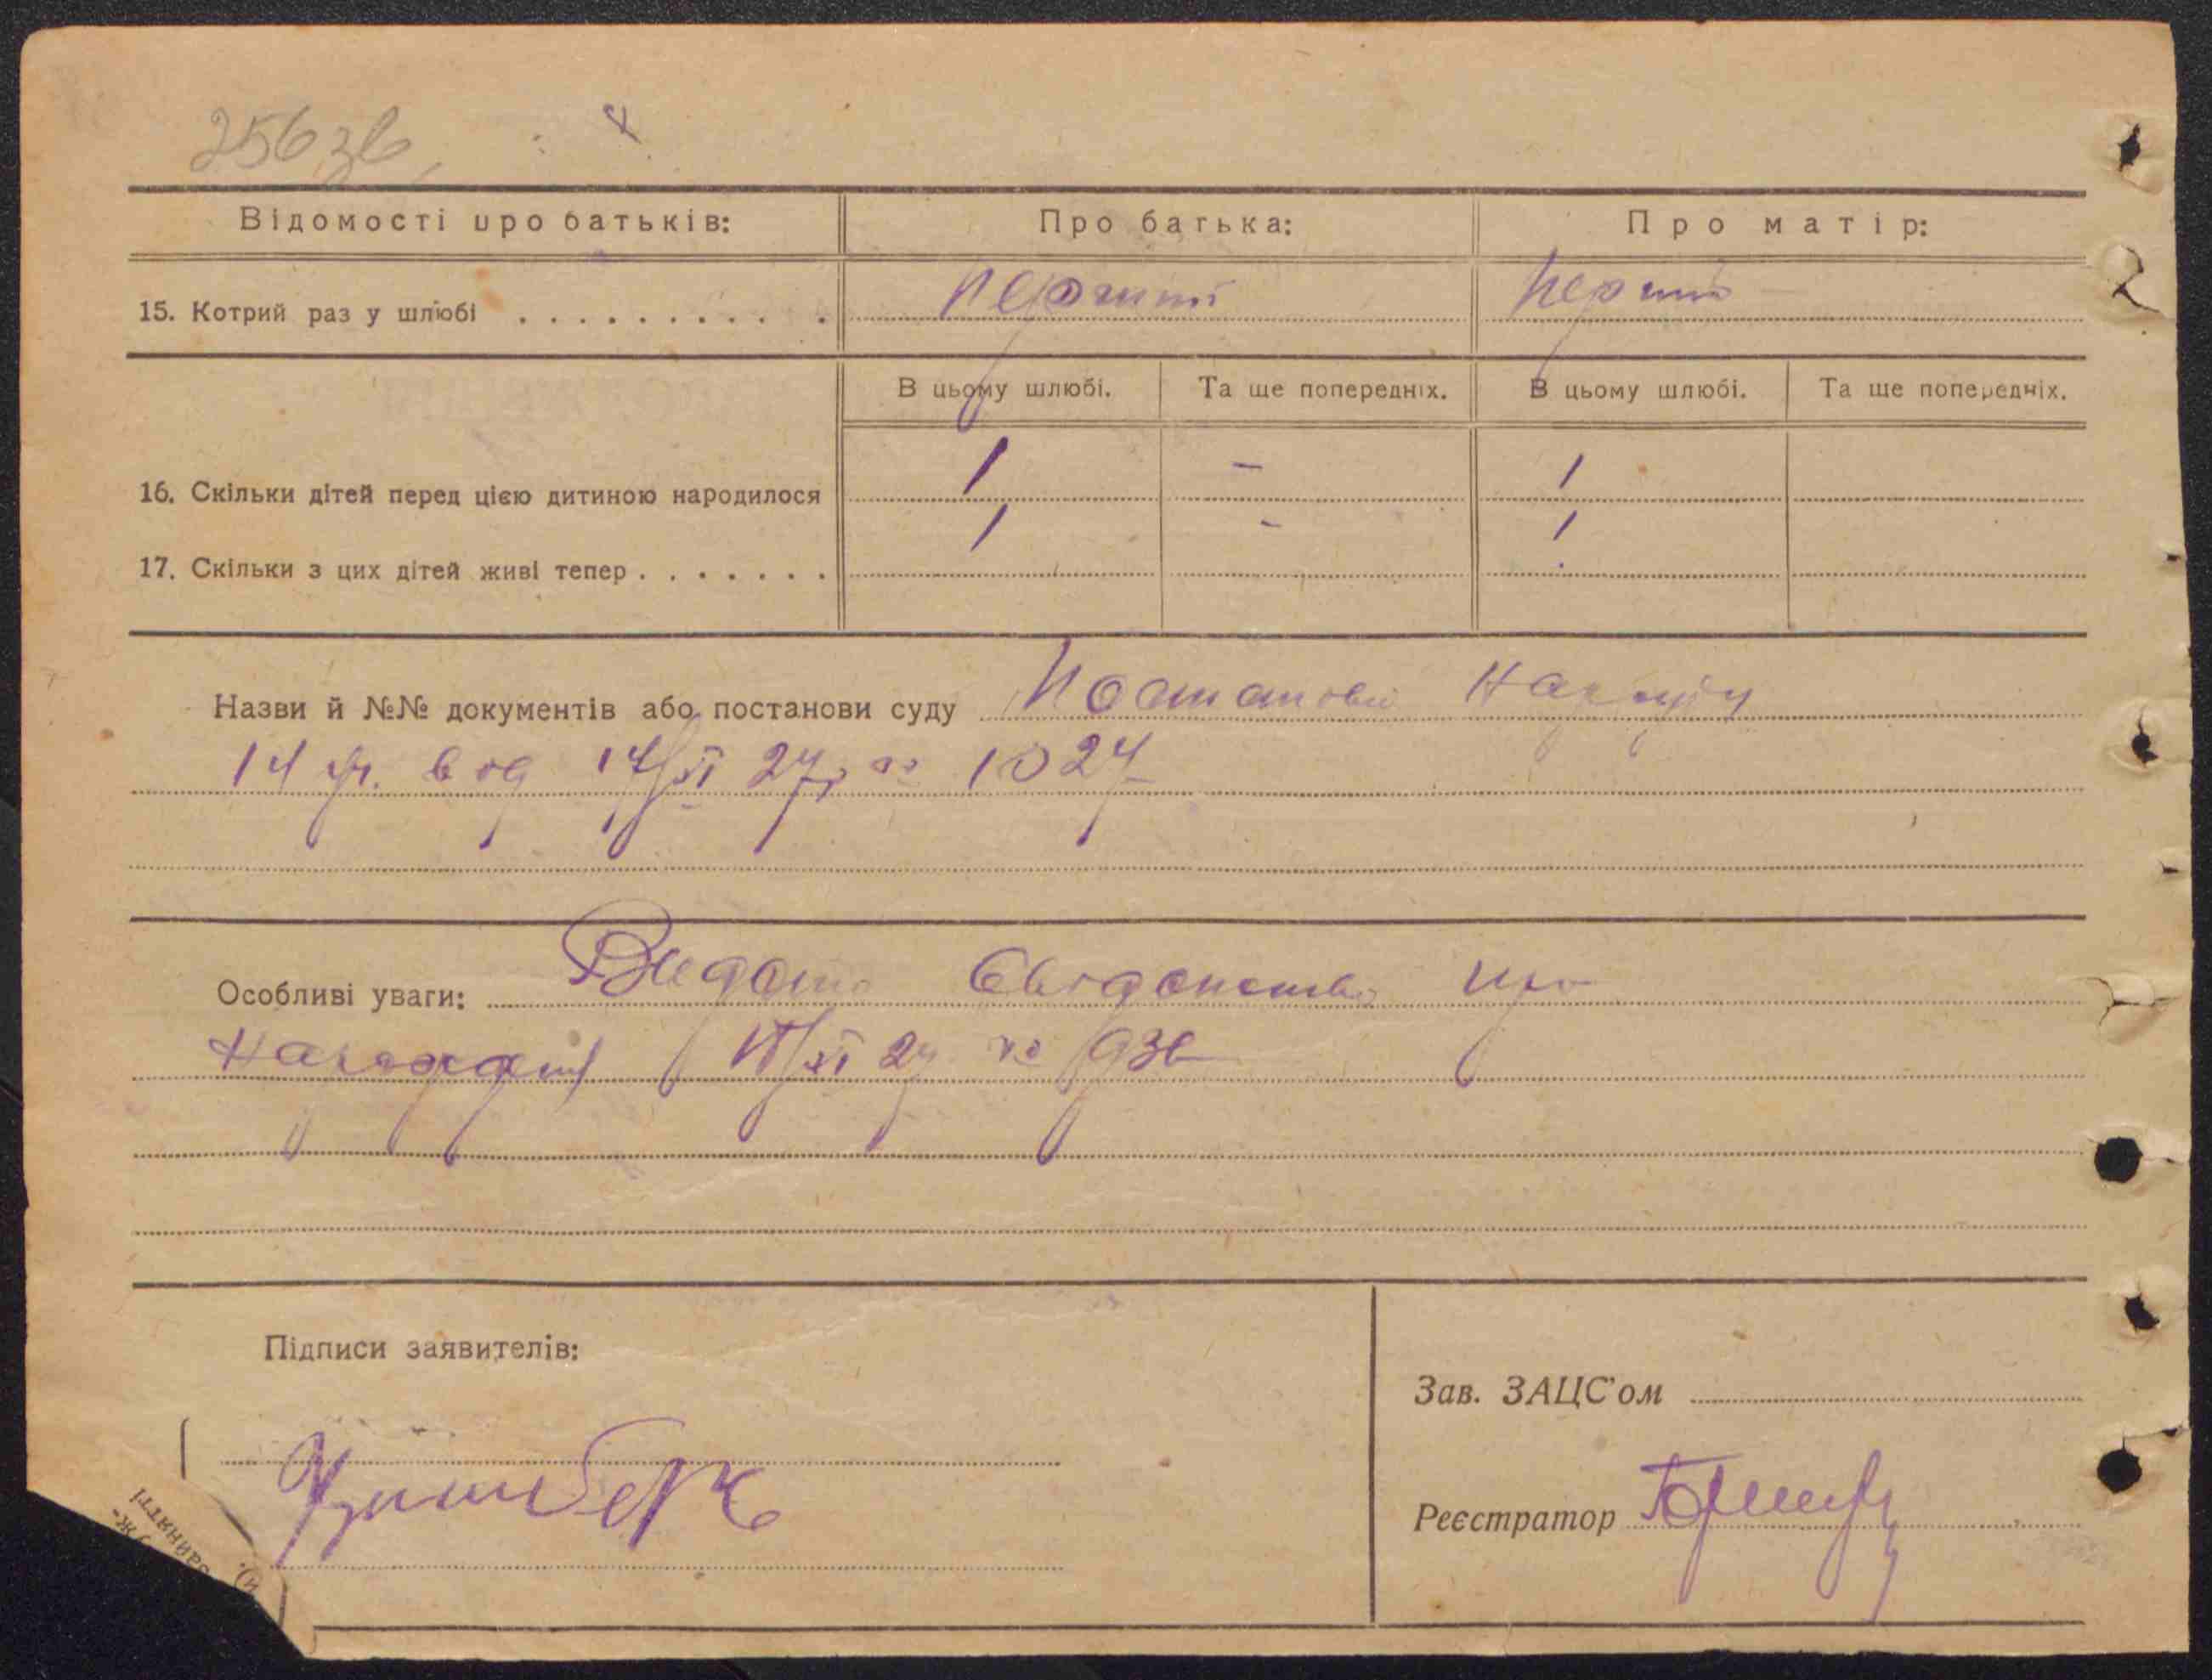 256зв
Відомості про батьків: Про батька: Про матір:
15. Котрий раз у шлюбі . . . . . . . . . . . перший перший
В цьому шлюбі. Та ще попередніх. В цьому шлюбі. Та ще попередніх.
16. Скільки дітей перед цією дитиною народилося 1 - 1
17. Скільки з цих дітей живі тепер . . . . . . . 1 - 1
Назви й №№ документів або постанови суду Постанова Нарсуду
14 від 14/XI 27 р № 1024
Особливі уваги: Видано Свідоцтво про
Народжен 17/XI 27 №
Підписи заявителів:
Зав. ЗАЦС'ом
Реєстратор
зайняті